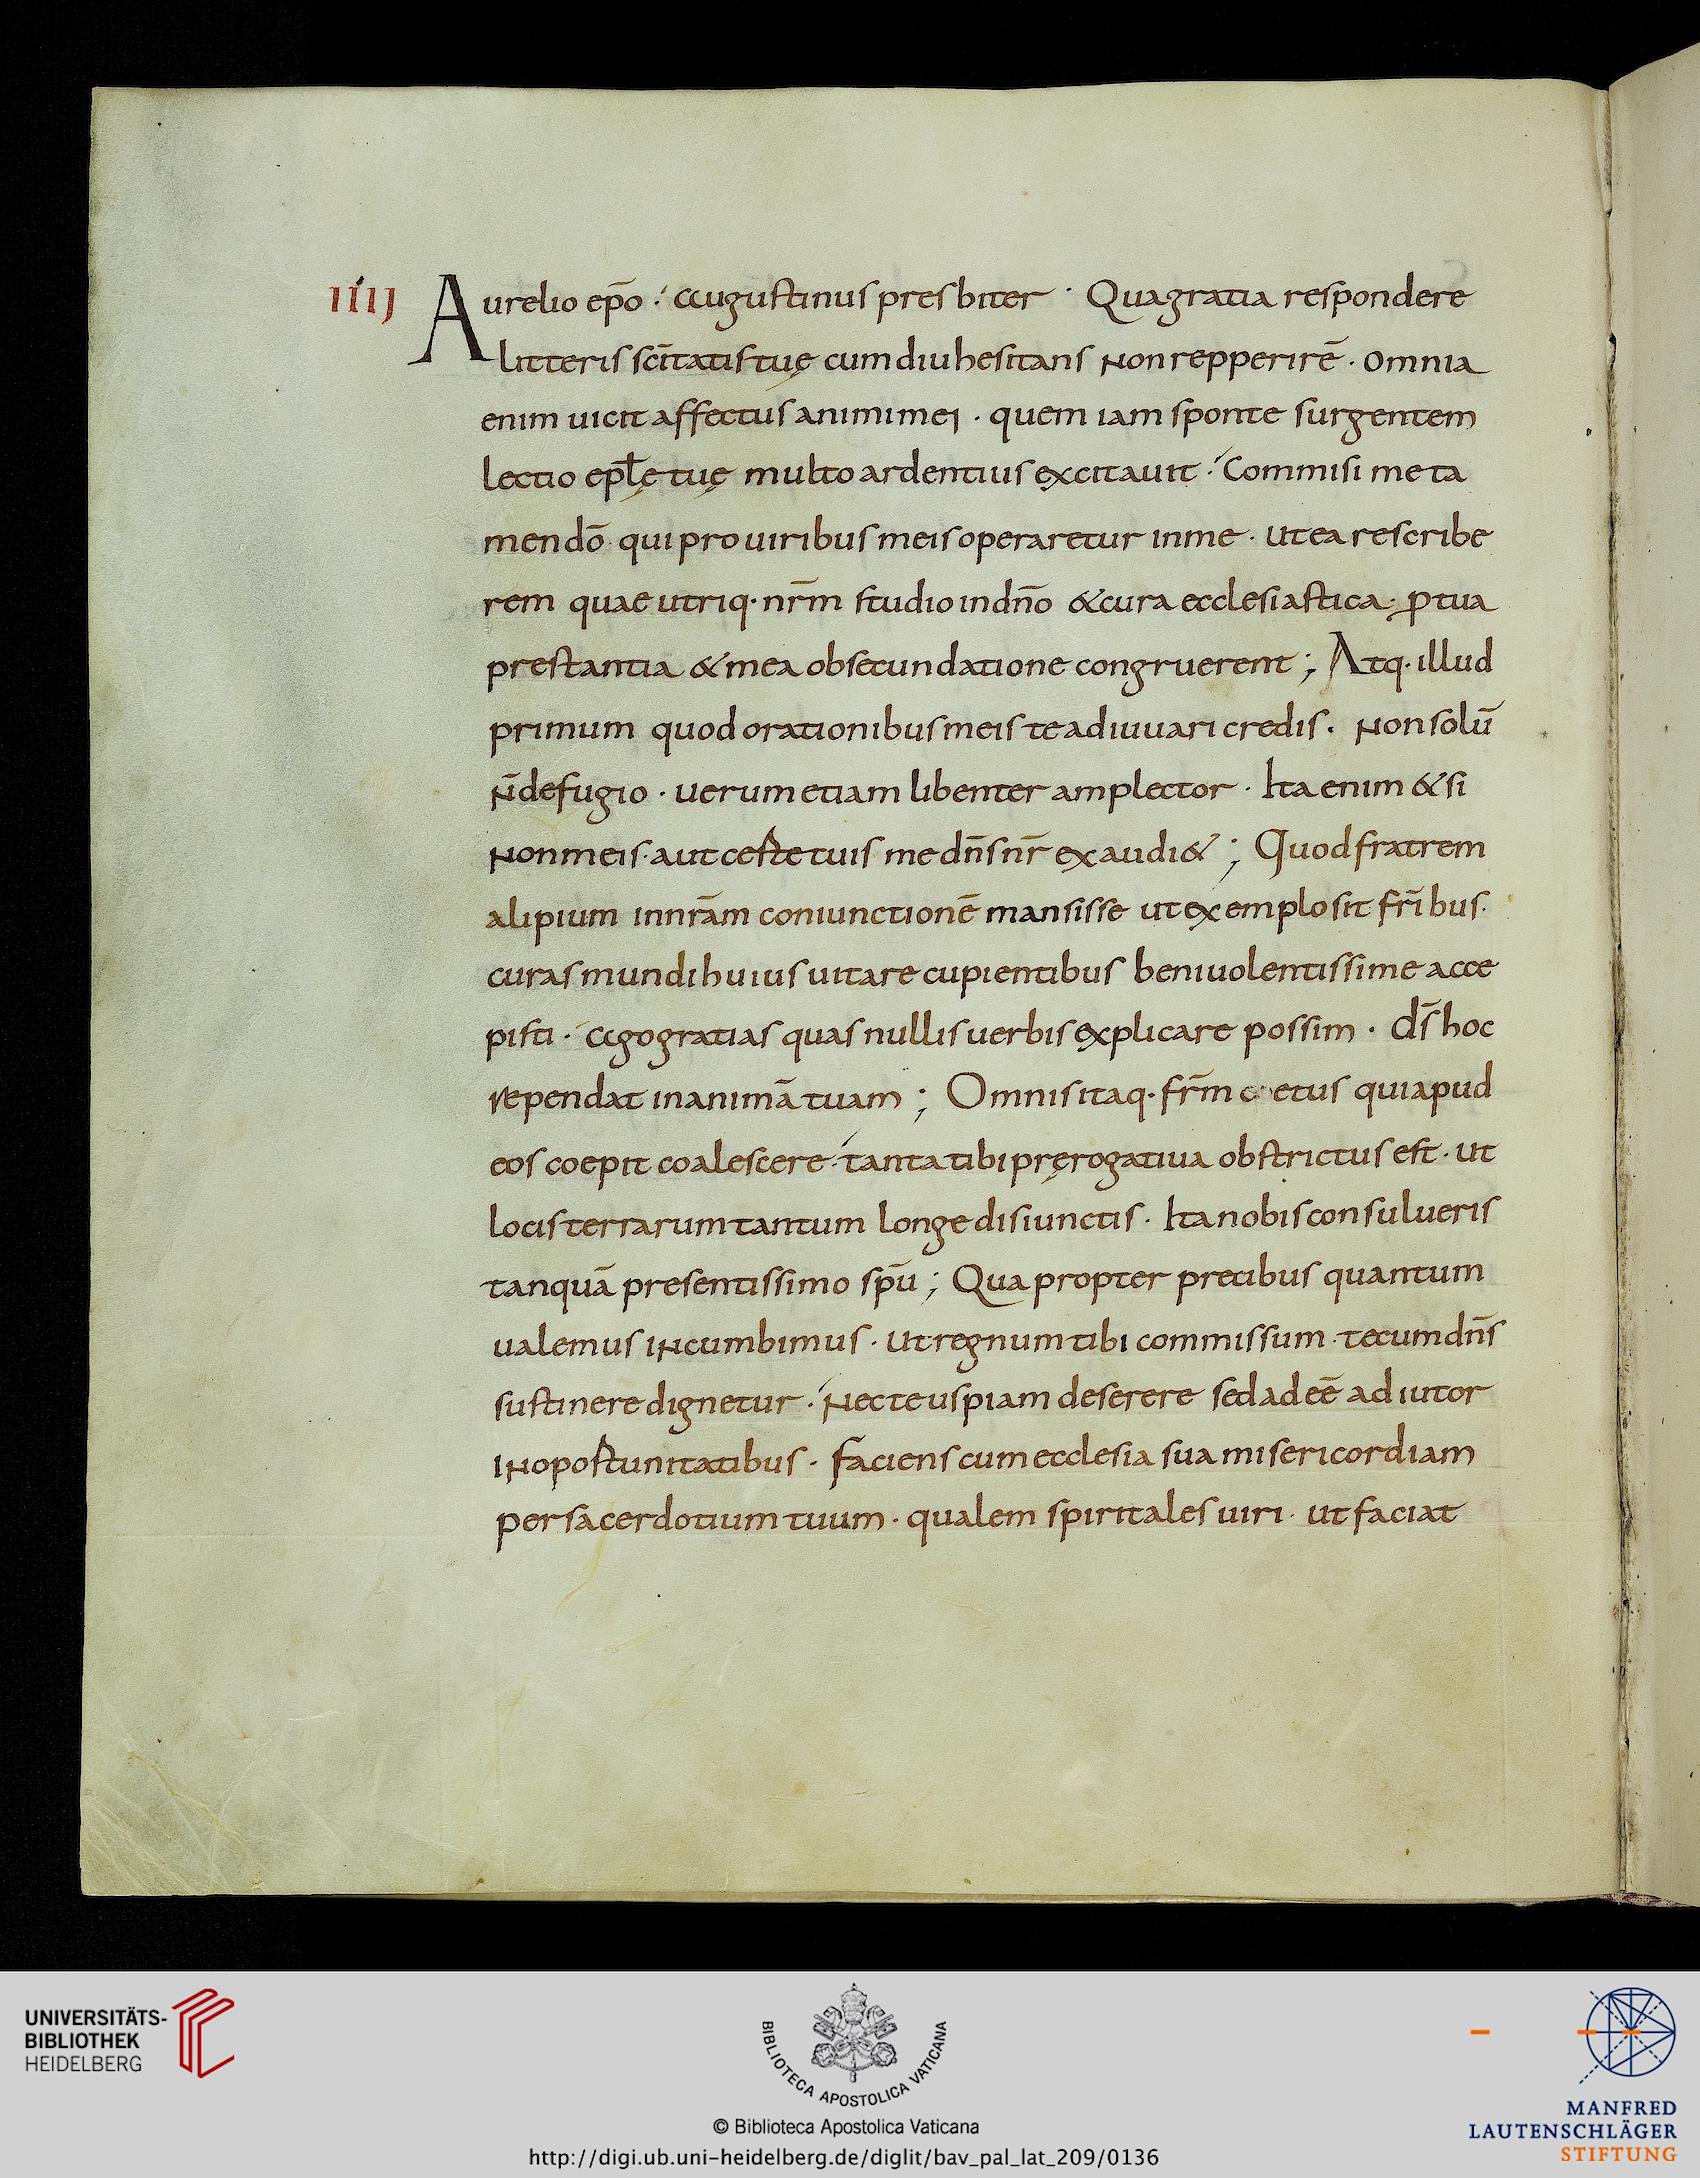 IIIJ Aurelio ep̄o · augustinus presbiter · Qua gratia respondere
litteris sc̄itatis tuę cum diu hesitans non repperirē · omnia
enim uicit affectus animi mei · quem iam sponte surgentem
lectio ep̄lę tuę multo ardentius excitauit · Commisi me ta
men dō qui pro uiribus meis operaretur in me · ut ea rescribe
rem quae utriq· nr̄m studio in dn̄o & cura ecclesiastica · ꝓ tua
prestantia & mea obsecundatione congruerent ; Atq· illud
primum quod orationibus meis te adiuuari credis · Non solū
n̄ defugio · uerum etiam libenter amplector · Ita enim & si
non meis · aut certe tuis me dn̄s nr̄ exaudi& ; Quod fratrem
alipium in nr̄am coniunctionē mansisse ut exemplo sit fr̄ibus ·
curas mundi huius uitare cupientibus beniuolentissime acce
pisti · ago gratias quas nullis uerbis explicare possim · d̄s hoc
rependat in animā tuam ; Omnis itaq· fr̄m c etus qui apud
eos coepit coalescere · tanta tibi pręrogatiua obstrictus est · ut
locis terrarum tantum longe disiunctis · Ita nobis consulueris
tanquā presentissimo sp̄u ; Qua propter precibus quantum
ualemus incumbimus · ut regnum tibi commissum · tecum dn̄s
sustinere dignetur · Nec te uspiam deserere sed adeē adiutor
in oportunitatibus · faciens cum ecclesia sua misericordiam
per sacerdotium tuum · qualem spiritales uiri · ut faciat
UNIVERSITÄTS-
BIBLIOTHEK
HEIDELBERG
BIBLIOTECA APOSTOLICA VATICANA
© Biblioteca Apostolica Vaticana
http://digi.ub.uni-heidelberg.de/diglit/bav_pal_lat_209/0136
MANFRED
LAUTENSCHLÄGER
STIFTUNG